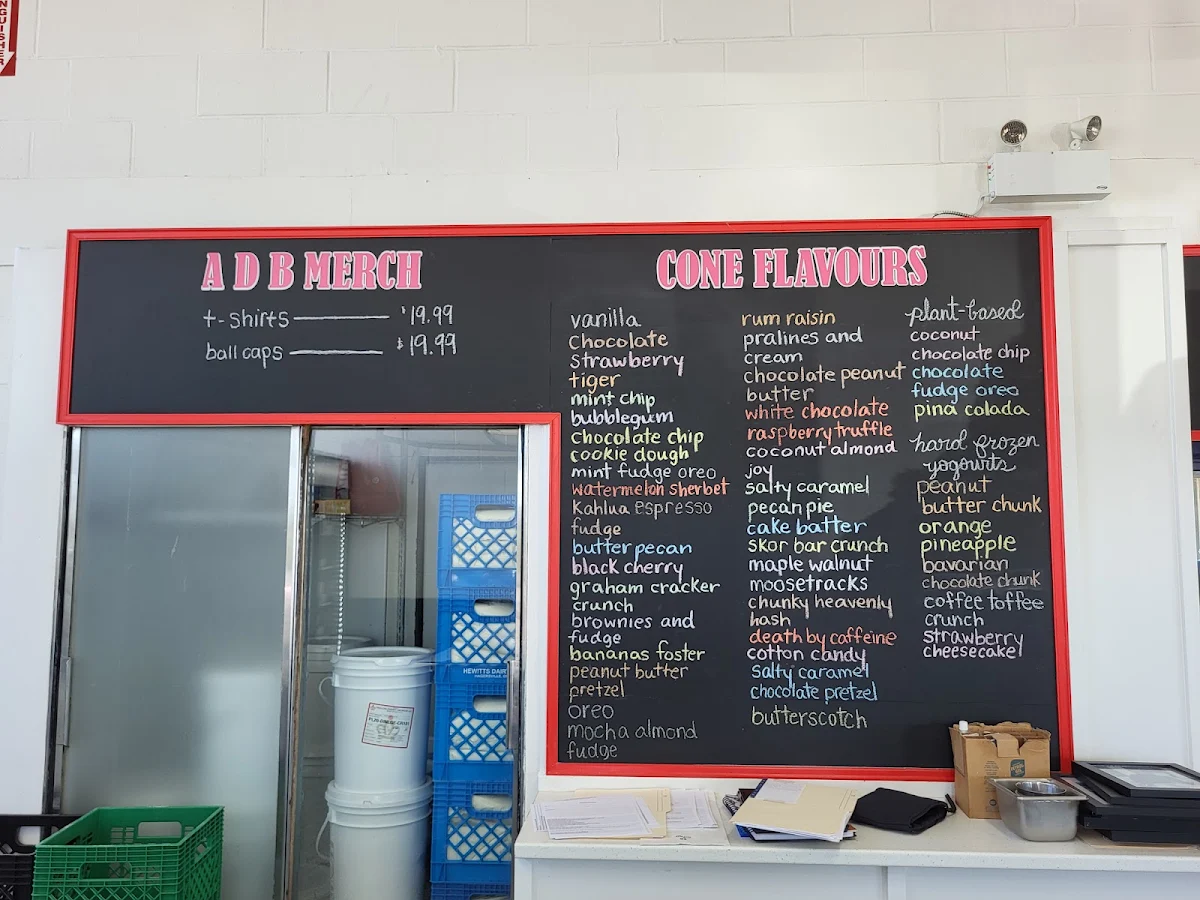 A D B MERCH
t-shirts $19.99
ball caps $19.99
CONE FLAVOURS
vanilla
Chocolate
Strawberry
tiger
mint chip
bubblegum
Chocolate chip
cookie dough
mint fudge oreo
watermelon sherbet
Kahlua espresso
fudge
butter pecan
black cherry
graham cracker
crunch
brownies and
fudge
bananas foster
peanut butter
pretzel
oreo
mocha almond
fudge
rum raisin
pralines and
cream
chocolate peanut
butter
white chocolate
raspberry truffle
coconut almond
joy
salty caramel
pecan pie
cake batter
skor bar crunch
maple walnut
moosetracks
chunky heavenly
hash
death by caffeine
cotton candy
Salty caramel
chocolate pretzel
butterscotch
plant-based
coconut
chocolate chip
chocolate
fudge oreo
pina colada
hard frozen
yogowrts
peanut
butter chunk
orange
pineapple
bavarian
chocolate chunk
coffee toffee
crunch
strawberry
cheesecake
HEWITTS DAIRY